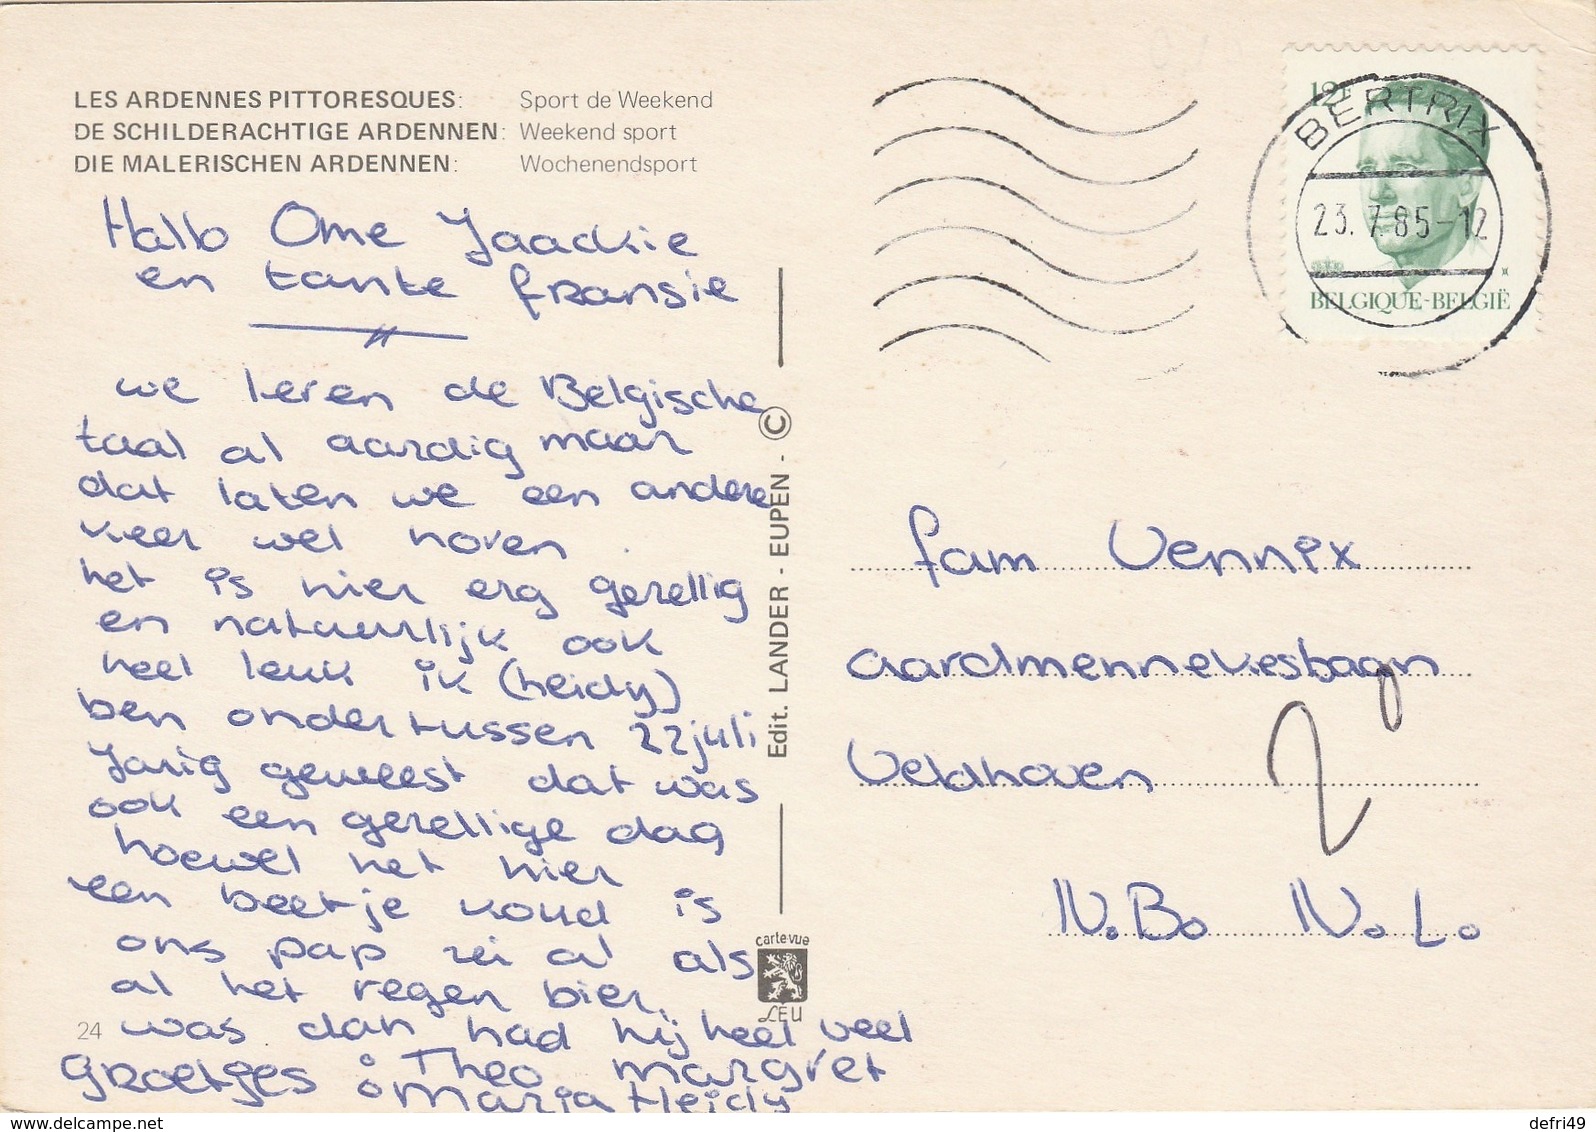 LES ARDENNES PITTORESQUES: Sport de Weekend
DE SCHILDERACHTIGE ARDENNEN: Weekend sport
DIE MALERISCHEN ARDENNEN: Wochenendsport
Hallo Ome Jaackie
en tante fransie
we leren de Belgische
taal al aardig maar
dat laten we een andere
keer wel horen.
het is hier erg gezellig
en natuurlijk ook
heel leuk ik (heidy)
ben ondertussen 22 juli
Jarig geweest dat was
ook een gezellige dag
hoewel het hier
een beetje koud is
ons pap zei al als
al het regen bier
was dan had hij heel veel
Groetjes: Theo margret
Marja Heidy
24
Edit. LANDER - EUPEN - ©
carte vue
LEU
12F
BELGIQUE-BELGIË
BERTRIX
23.7.85-12
fam Vennix
aardmennekesbaan
Veldhoven
2
N.B. N.L.
delcampe.net
defri49